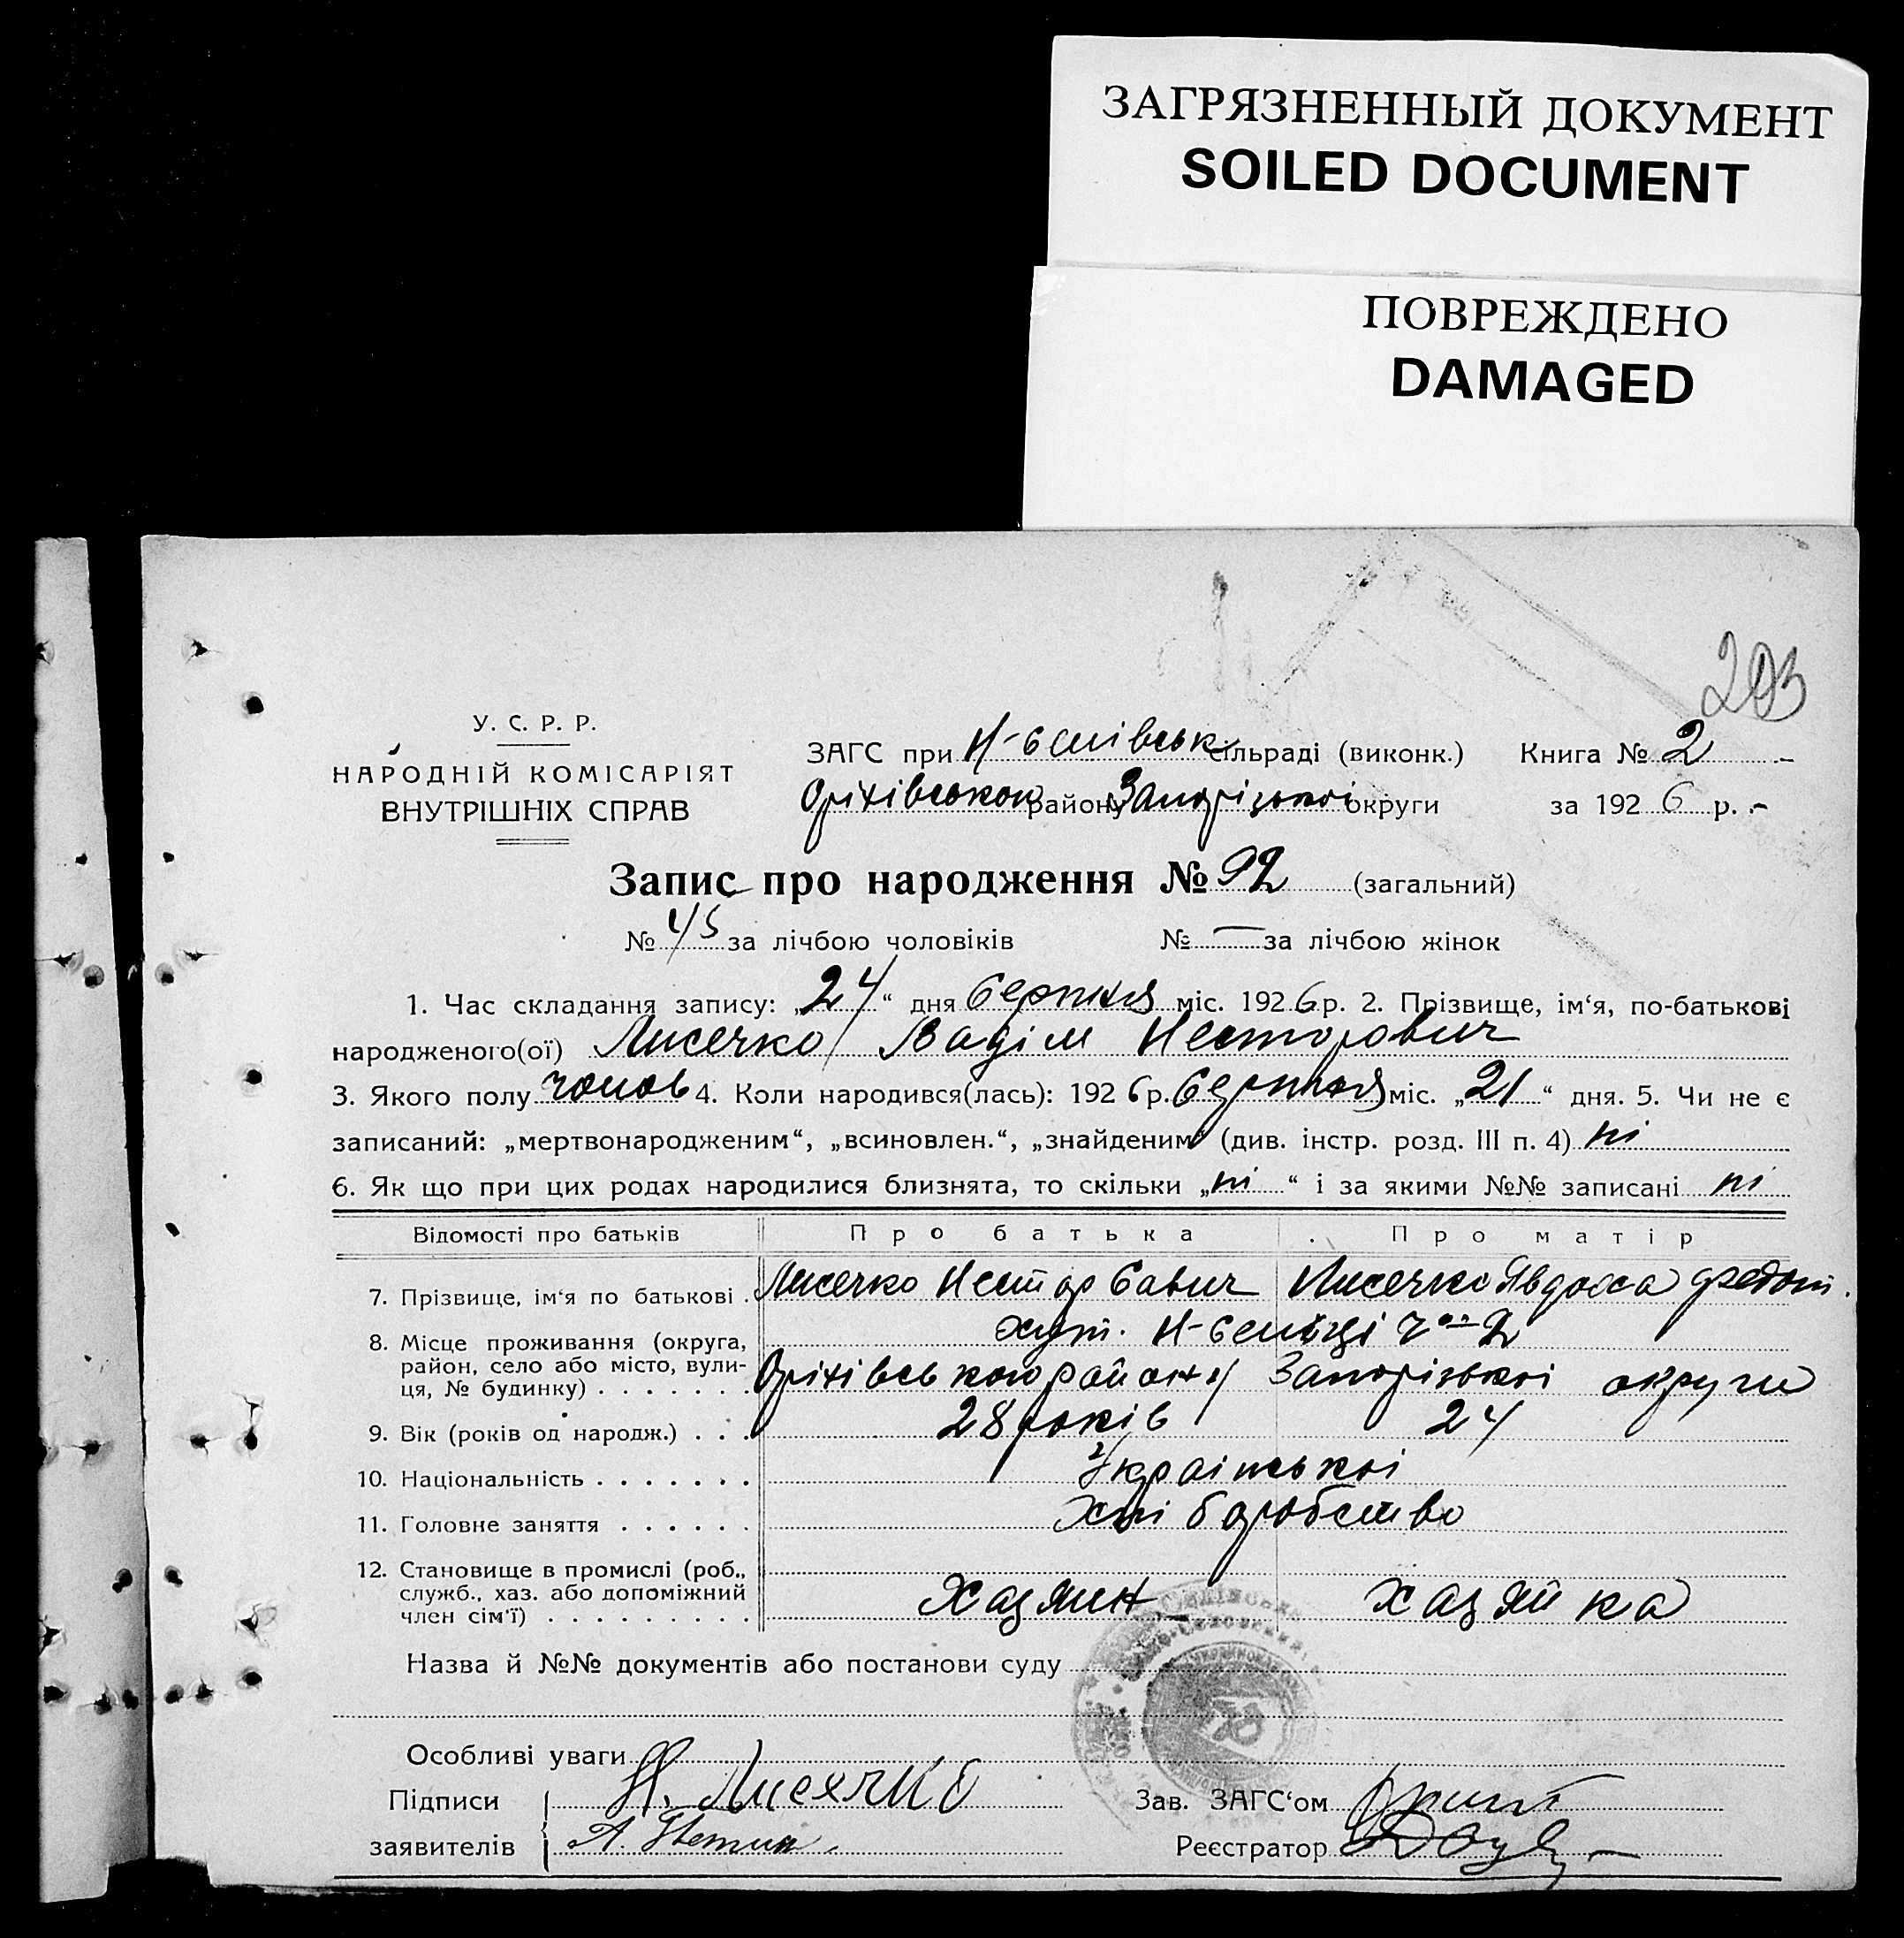 ЗАГРЯЗНЕННЫЙ ДОКУМЕНТ
SOILED DOCUMENT
ПОВРЕЖДЕНО
DAMAGED
203
У. С. Р. Р.
НАРОДНІЙ КОМІСАРІЯТ
ВНУТРІШНІХ СПРАВ
ЗАГС при сільраді (виконк.) Книга № 2
Оріхівського району Запорізької округи за 1926 р.
Запис про народження № 92 (загальний)
№ 45 за лічбою чоловіків № — за лічбою жінок
1. Час складання запису: „24“ дня Серпня міс. 1926 р. 2. Прізвище, ім‘я, по-батькові
народженого(ої) Лисечко Вадім Несторович
3. Якого полу чолов 4. Коли народився(лась): 1926 р. Серпня міс. „21“ дня. 5. Чи не є
записаний: „мертвонародженим“, „всиновлен.“, „знайденим“ (див. інстр. розд. III п. 4) ні
6. Як що при цих родах народилися близнята, то скільки „ні“ і за якими №№ записані ні
Відомості про батьків Про батька Про матір
7. Прізвище, ім‘я по батькові . Лисечко Нестор Савич Лисечко Явдоха Федот.
8. Місце проживання (округа, район, село або місто, вулиця, № будинку) . . . . . . . хут.
Оріхівського району Запорізької округи
9. Вік (років од народж.) . . . 28 років 24
10. Національність . . . . . . . Української
11. Головне заняття . . . . . . хліборобство
12. Становище в промислі (роб., служб., хаз. або допоміжний член сім‘ї) . . . . . . . . . Хазяин хазяйка
Назва й №№ документів або постанови суду
Особливі уваги
Підписи заявителів Н. Лисечко
Зав. ЗАГС‘ом
Реєстратор